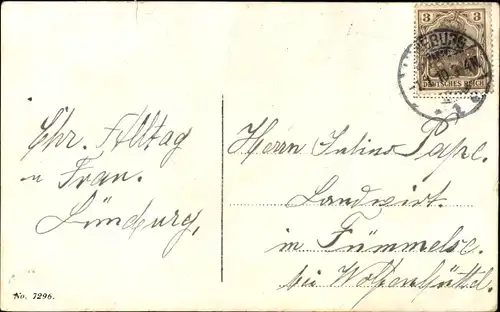 3
DEUTSCHES REICH
Chr. Alltag
u Frau.
Lüneburg,
Herrn Julius Pape.
Landwirt.
in Fümmelse.
bei Wolfenbüttel.
No. 7296.